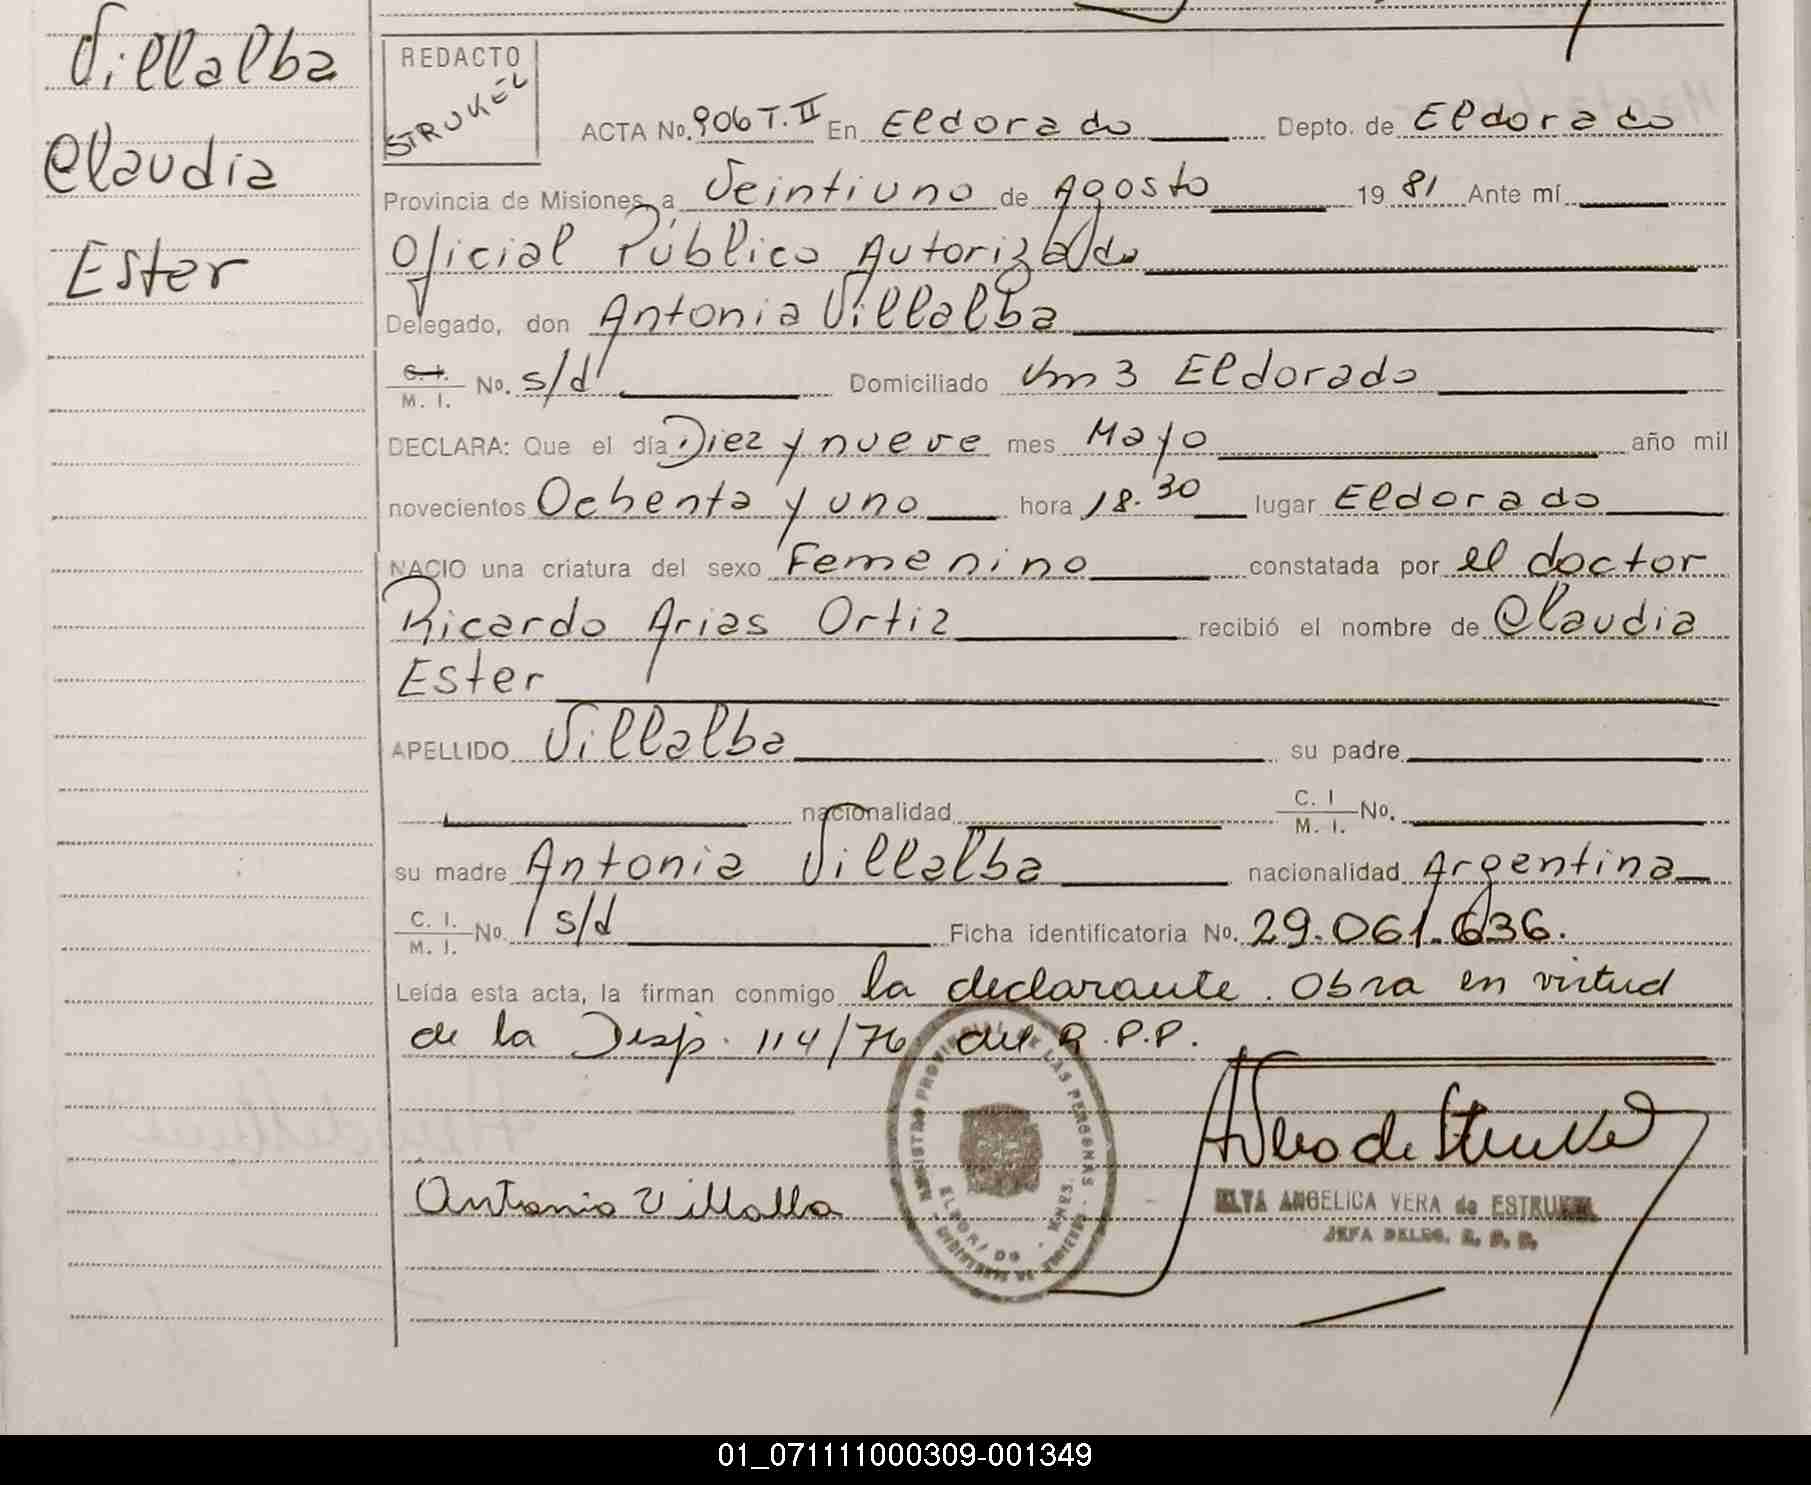 Villalba
Claudia
Ester
REDACTO
STRUKEL
ACTA No. 906 T. II En Eldorado Depto. de Eldorado
Provincia de Misiones, a Veintiuno de Agosto 19 81 Ante mí
Oficial Público Autorizado
Delegado, don Antonia Villalba
C. I. M. I. No. s/d Domiciliado Km 3 Eldorado
DECLARA: Que el día Diez y nueve mes Mayo año mil
novecientos Ochenta y uno hora 18.30 lugar Eldorado
NACIO una criatura del sexo Femenino constatada por el doctor
Ricardo Arias Ortiz recibió el nombre de Claudia
Ester
APELLIDO Villalba su padre
nacionalidad C. I M. I. No.
su madre Antonia Villalba nacionalidad Argentina
C. I. M. I. No. s/d Ficha identificatoria No. 29.061.636.
Leída esta acta, la firman conmigo la declarante. Obra en virtud
de la Disp. 114/76 del R.P.P.
REGISTRO PROVINCIAL DE LAS PERSONAS
ELDORADO - MNES.
Antonia Villalba
ELVA ANGELICA VERA de ESTRUKEL
JEFA DELEG. R. P. P.
01_071111000309-001349